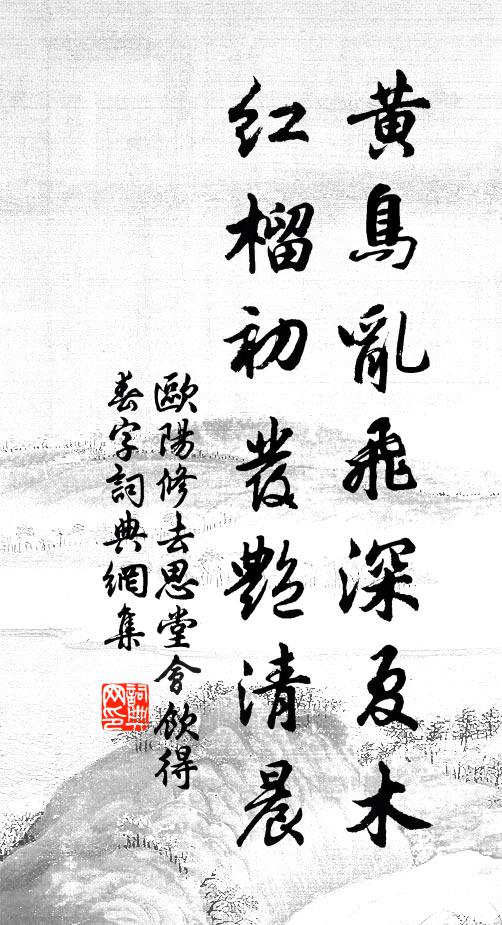 黃鳥亂飛深夏木
紅榴初發艷清晨
歐陽修去思堂會飲得
春字詞典網集
詞典
网印